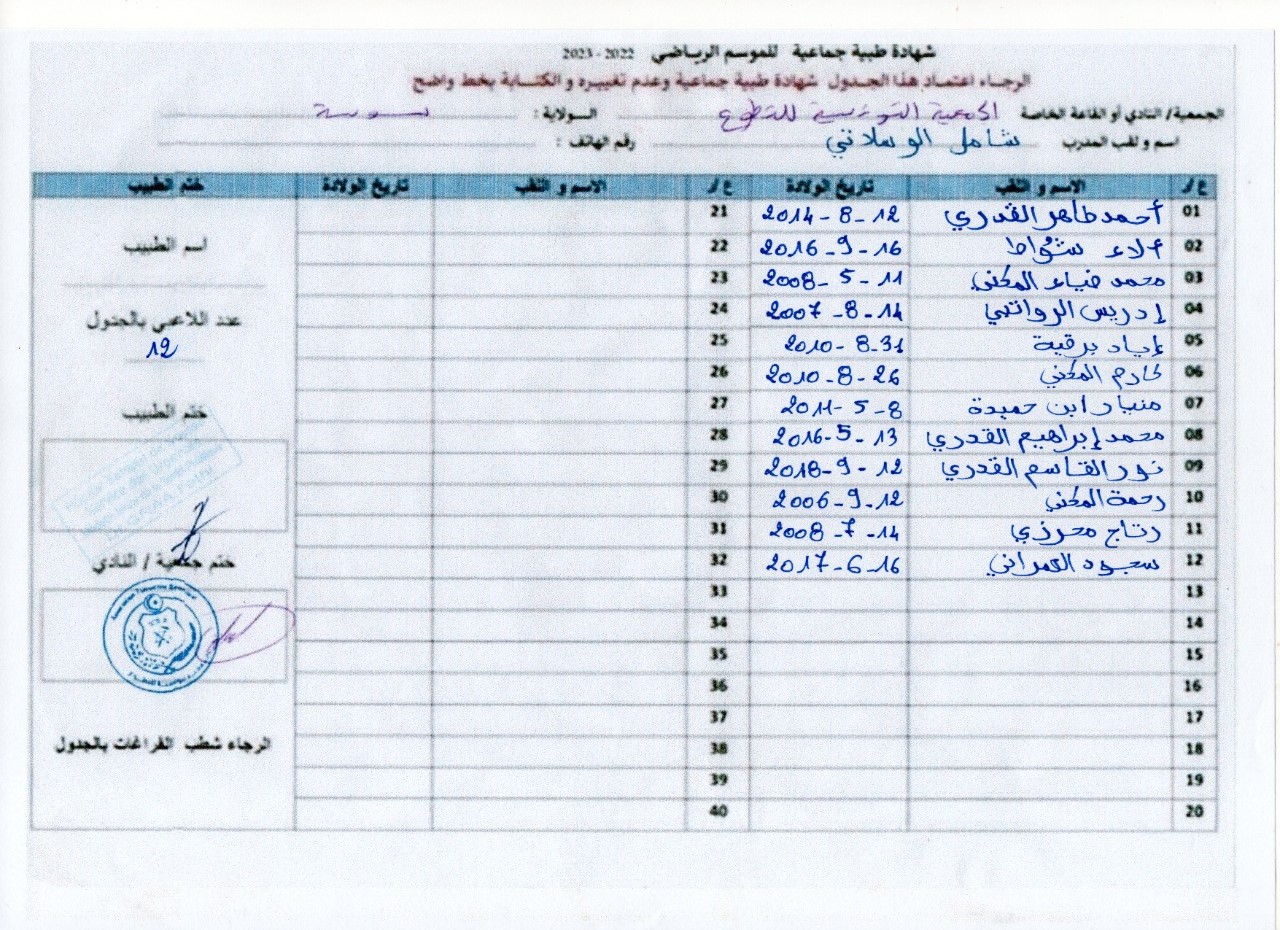 شهادة طبية جماعية للموسم الرياضي 2022 - 2023
الرجاء اعتماد هذا الجدول شهادة طبية جماعية وعدم تغييره و الكتابة بخط واضح
الجمعية/ النادي أو القاعة الخاصة الجمعية التونسية للتطوع الولاية : سوسة
اسم و لقب المدرب شامل الوسلاتي رقم الهاتف :
ع/ الاسم و اللقب تاريخ الولادة ع/ الاسم و اللقب تاريخ الولادة ختم الطبيب
01 أحمد طاهر القدري 12 - 8 - 2014 21
02 ألاء شواط 16 - 9 - 2016 22
03 محمد ضياء المكني 11 - 5 - 2008 23
04 إدريس الرواتبي 14 - 8 - 2007 24
05 إياد برقية 31 - 8 - 2010 25
06 المكني 26 - 8 - 2010 26
07 منيار ابن حميدة 8 - 5 - 2011 27
08 محمد إبراهيم القدري 13 - 5 - 2016 28
09 نور القاسم القدري 12 - 9 - 2018 29
10 رحمة المكني 12 - 9 - 2006 30
11 رتاج محرزي 14 - 7 - 2008 31
12 سجود العمراني 16 - 6 - 2017 32
13 33
14 34
15 35
16 36
17 37
18 38
19 39
20 40
اسم الطبيب
عدد اللاعبي بالجدول
12
ختم الطبيب
ختم جمعية / النادي
الرجاء شطب الفراغات بالجدول